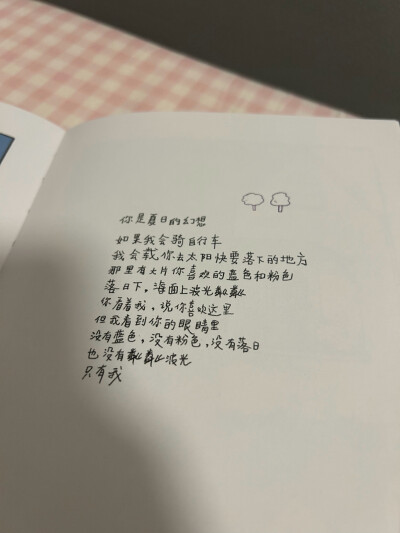 你是夏日的幻想
如果我会骑自行车
我会载你去太阳快要落下的地方
那里有大片你喜欢的蓝色和粉色
落日下，海面上波光粼粼
你看着我，说你喜欢这里
但我看到你的眼睛里
没有蓝色，没有粉色，没有落日
也没有粼粼波光
只有我